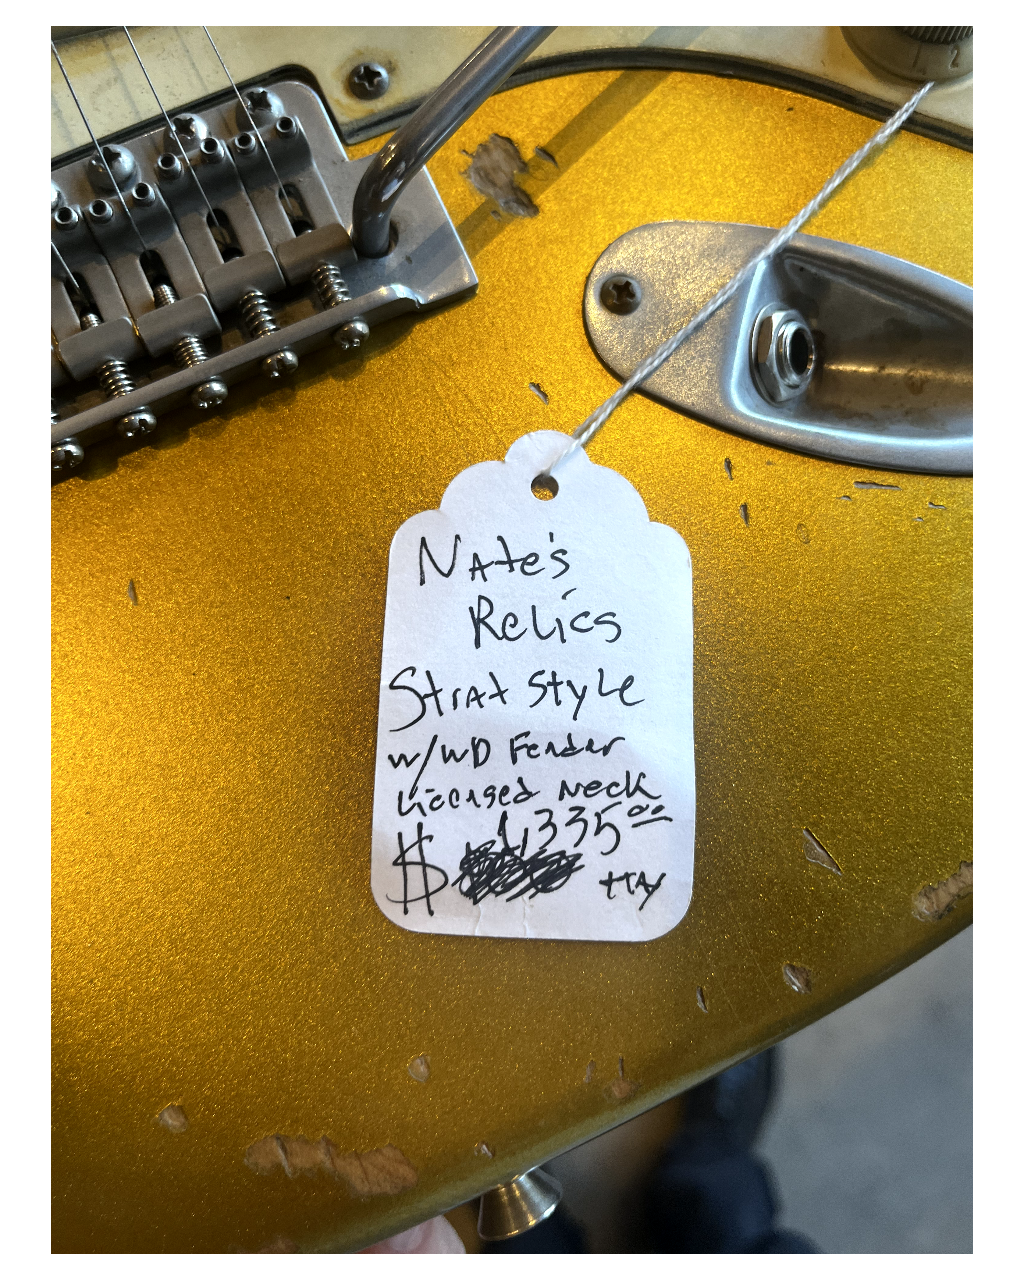 Nate's
Relics
Strat Style
w/WD Fender
Licensed Neck
$ 1,335.00
+TAX
2